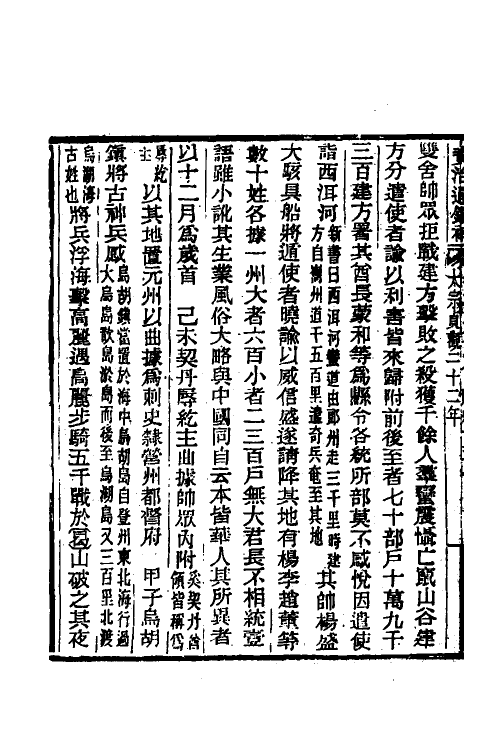 太宗貞觀二十二年
雙舍帥眾拒戰建方擊敗之殺獲千餘人羣蠻震懾亡竄山谷建
方分遣使者諭以利害皆來歸附前後至者七十部戶十萬九千
三百建方署其酋長蒙和等爲縣令各統所部莫不感悅因遣使
詣西洱河新書曰西洱河蠻道由郎州走三千里時建方自巂州道千五百里遣奇兵奄至其地其帥楊盛
大駭具船將遁使者曉諭以威信盛遂請降其地有楊李趙董等
數十姓各據一州大者六百小者二三百戶無大君長不相統壹
語雖小訛其生業風俗大略與中國同自云本皆華人其所異者
以十二月爲歲首　己未契丹辱紇主曲據帥眾內附奚契丹酋領皆稱爲
辱紇主以其地置元州以曲據爲刺史隸營州都督府　甲子烏胡
鎮將古神感烏胡鎮當置於海中烏胡島自登州東北海行過大島龜歆島淤島而後至烏湖島又三百里北渡
烏湖海古姓也將兵浮海擊高麗遇高麗步騎五千戰於曷山破之其夜